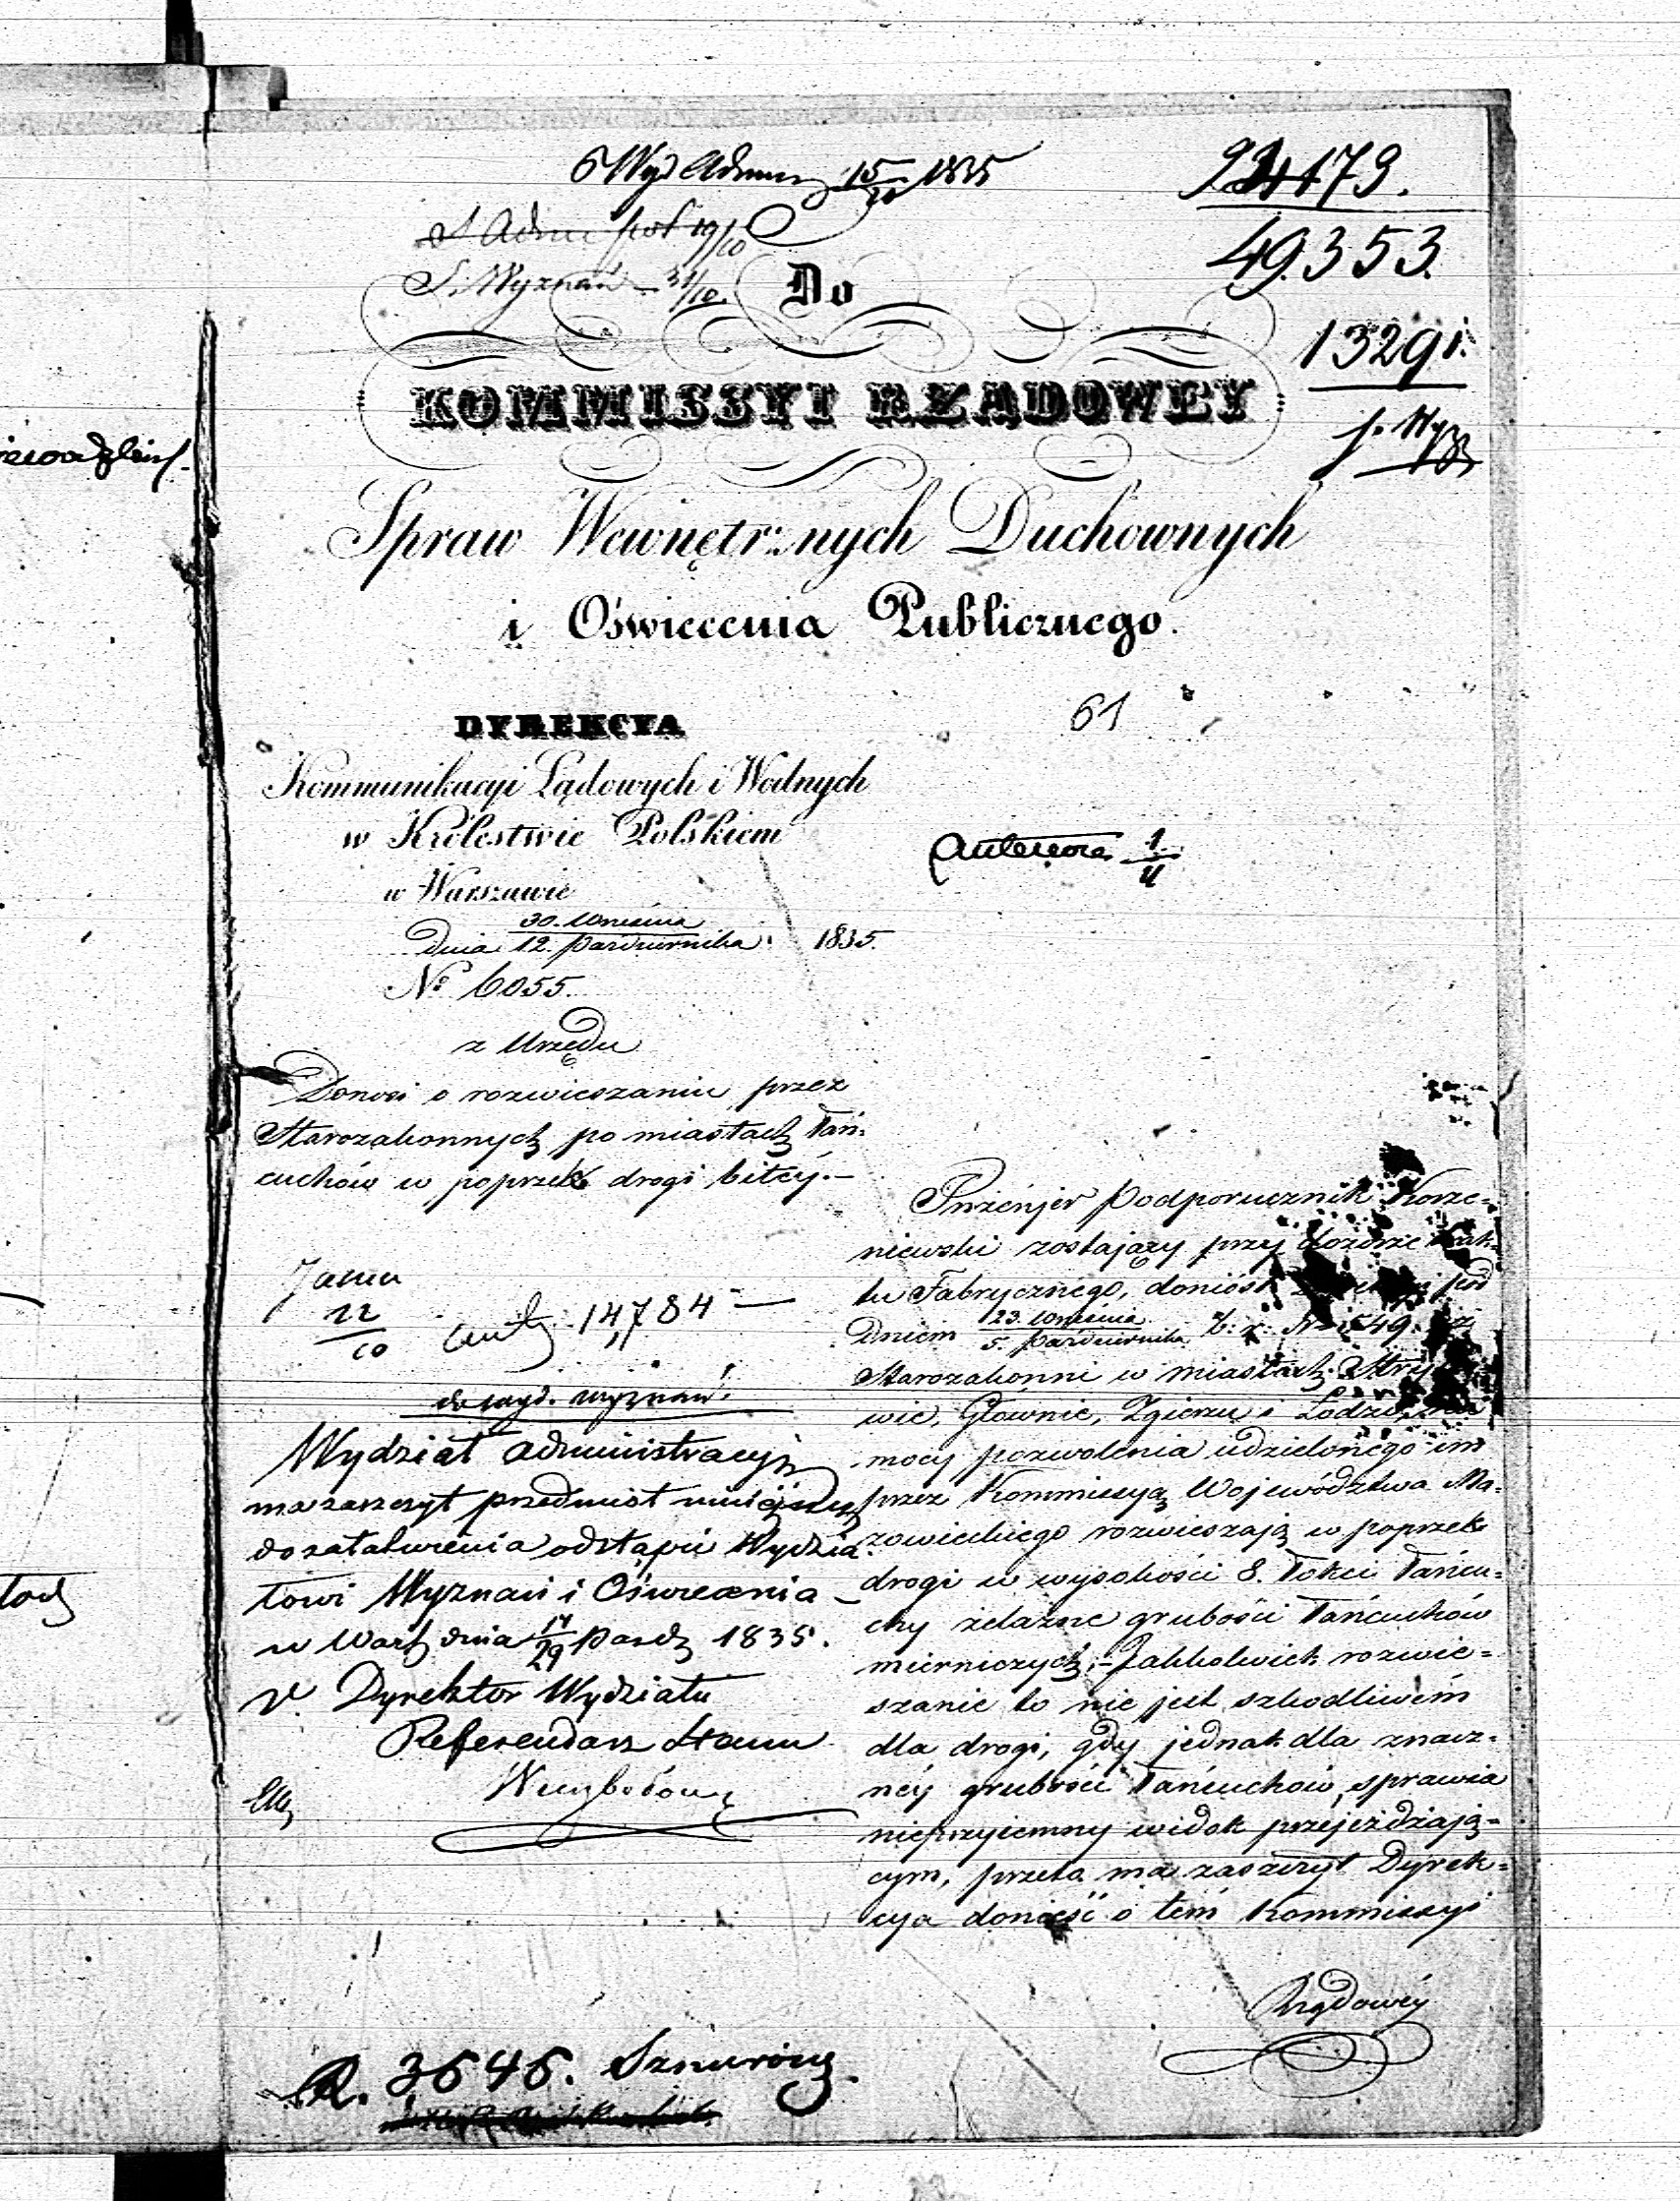 Wyd Admin 15/10 1835
24179.
49.353.
S. Wyznań 31/10.
13291.
Do
KOMMISSYI RZĄDOWEY
Spraw Wewnętrznych Duchownych
i Oświecenia Publicznego.
61
DYREKCYA
Kommunikacyi Lądowych i Wodnych
w Królestwie Polskiem
w Warszawie
dnia 30. Września / 12. Października 1835.
№ 6055.
z Urzędu
Donosi o rozwieszaniu przez
Starozakonnych po miastach łań-
cuchów w poprzek drogi bitéy.—
22/10
14,784 —
do wyd. wyznań.
Wydział Administracyjny
ma zaszczyt przedmiot niniejszy
do załatwienia odstąpić Wydzia-
łowi Wyznań i Oświecenia —
w Warsz dnia 17/29 Paźdz 1835.
Dyrektor Wydziału
Referendarz Stanu
Inżenjer Podporucznik Korze-
niewski zostający przy dozorze Trak-
tu Fabrycznego, doniósł pod
dniem 23. Września / 5. Października 549.
Starozakonni w miastach Stryko-
wie, Głównie, Zgierzu i Łodzi, na
mocy pozwolenia udzielonego im
przez Kommissyą Województwa Ma-
zowieckiego rozwieszają w poprzek
drogi w wysokości 8. łokci łańcu-
chy żelazne grubości łańcuchów
mierniczych.— Jakkolwiek rozwie-
szanie to nie jest szkodliwém
dla drogi, gdy jednak dla znacz-
néy grubości łańcuchów, sprawia
nieprzyiemny widok przejeżdżają-
cym, przeto ma zaszczyt Dyrek-
cya donieść o tém Kommissyi
Rządowéy
R. 3646. Sznurów